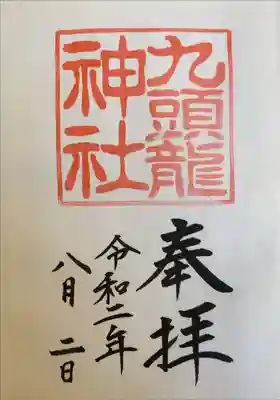 九頭龍
神社
奉拝
令和二年
八月二日